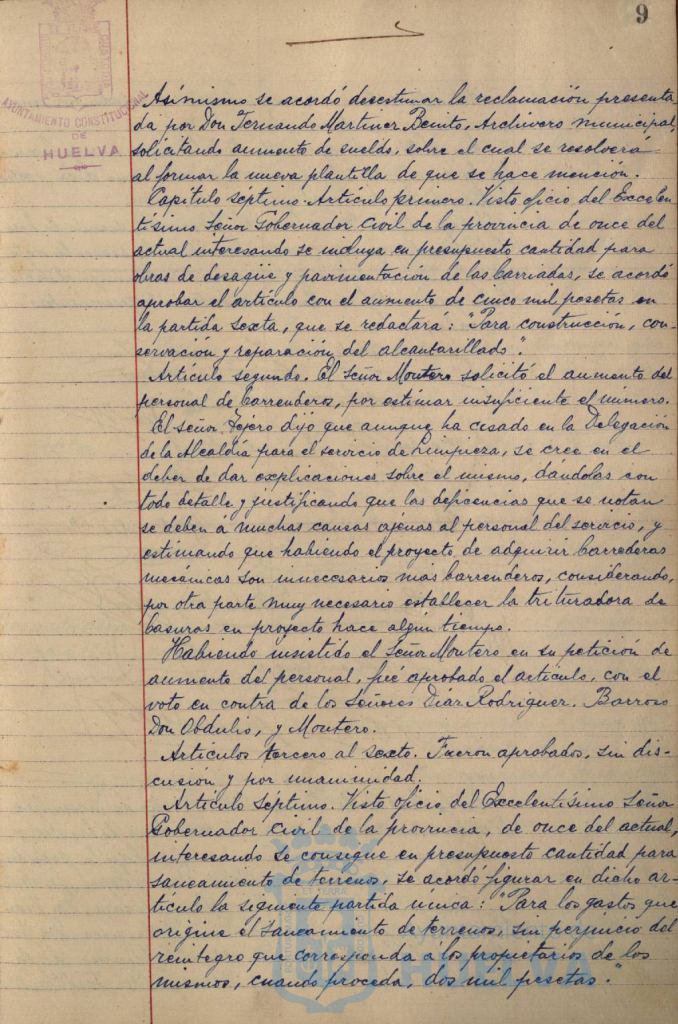 9
AYUNTAMIENTO CONSTITUCIONAL
DE
HUELVA
Asímismo se acordó desestimar la reclamación presenta-
da por Don Fernando Martínez Benito, Archivero municipal,
solicitando aumento de sueldo, sobre el cual se resolverá
al formar la nueva plantilla de que se hace mención.
Capítulo séptimo. Artículo primero. Visto oficio del Excelen-
tísimo Señor Gobernador Civil de la provincia de once del
actual interesando se incluya en presupuesto cantidad para
obras de desagüe y pavimentación de las barriadas, se acordó
aprobar el artículo con el aumento de cinco mil pesetas en
la partida sexta, que se redactará: "Para construcción, con-
servación y reparación del alcantarillado".
Artículo segundo. El Señor Montero solicitó el aumento del
personal de barrenderos, por estimar insuficiente el número.
El señor Tejero dijo que aunque ha cesado en la Delegación
de la Alcaldía para el servicio de Limpieza, se cree en el
deber de dar explicaciones sobre el mismo, dándolas con
todo detalle y justificando que las deficencias que se notan
se deben á muchas causas ajenas al personal del servicio, y
estimando que habiendo el proyecto de adquirir barrederas
mecánicas son innecesarios mas barrenderos, considerando,
por otra parte muy necesario establecer la trituradora de
basuras en proyecto hace algún tiempo.
Habiendo insistido el Señor Montero en su petición de
aumento del personal, fué aprobado el artículo, con el
voto en contra de los Señores Díaz Rodríguez. Barroso
Don Obdulio, y Montero.
Artículos tercero al sexto. Fueron aprobados, sin dis-
cusión y por unanimidad.
Artículo séptimo. Visto oficio del Excelentísimo Señor
Gobernador Civil de la provincia, de once del actual,
interesando se consigne en presupuesto cantidad para
saneamiento de terrenos, se acordó figurar en dicho ar-
tículo la siguiente partida única: "Para los gastos que
origine el saneamiento de terrenos, sin perjuicio del
reintegro que corresponda a los propietarios de los
mismos, cuando proceda, dos mil pesetas."